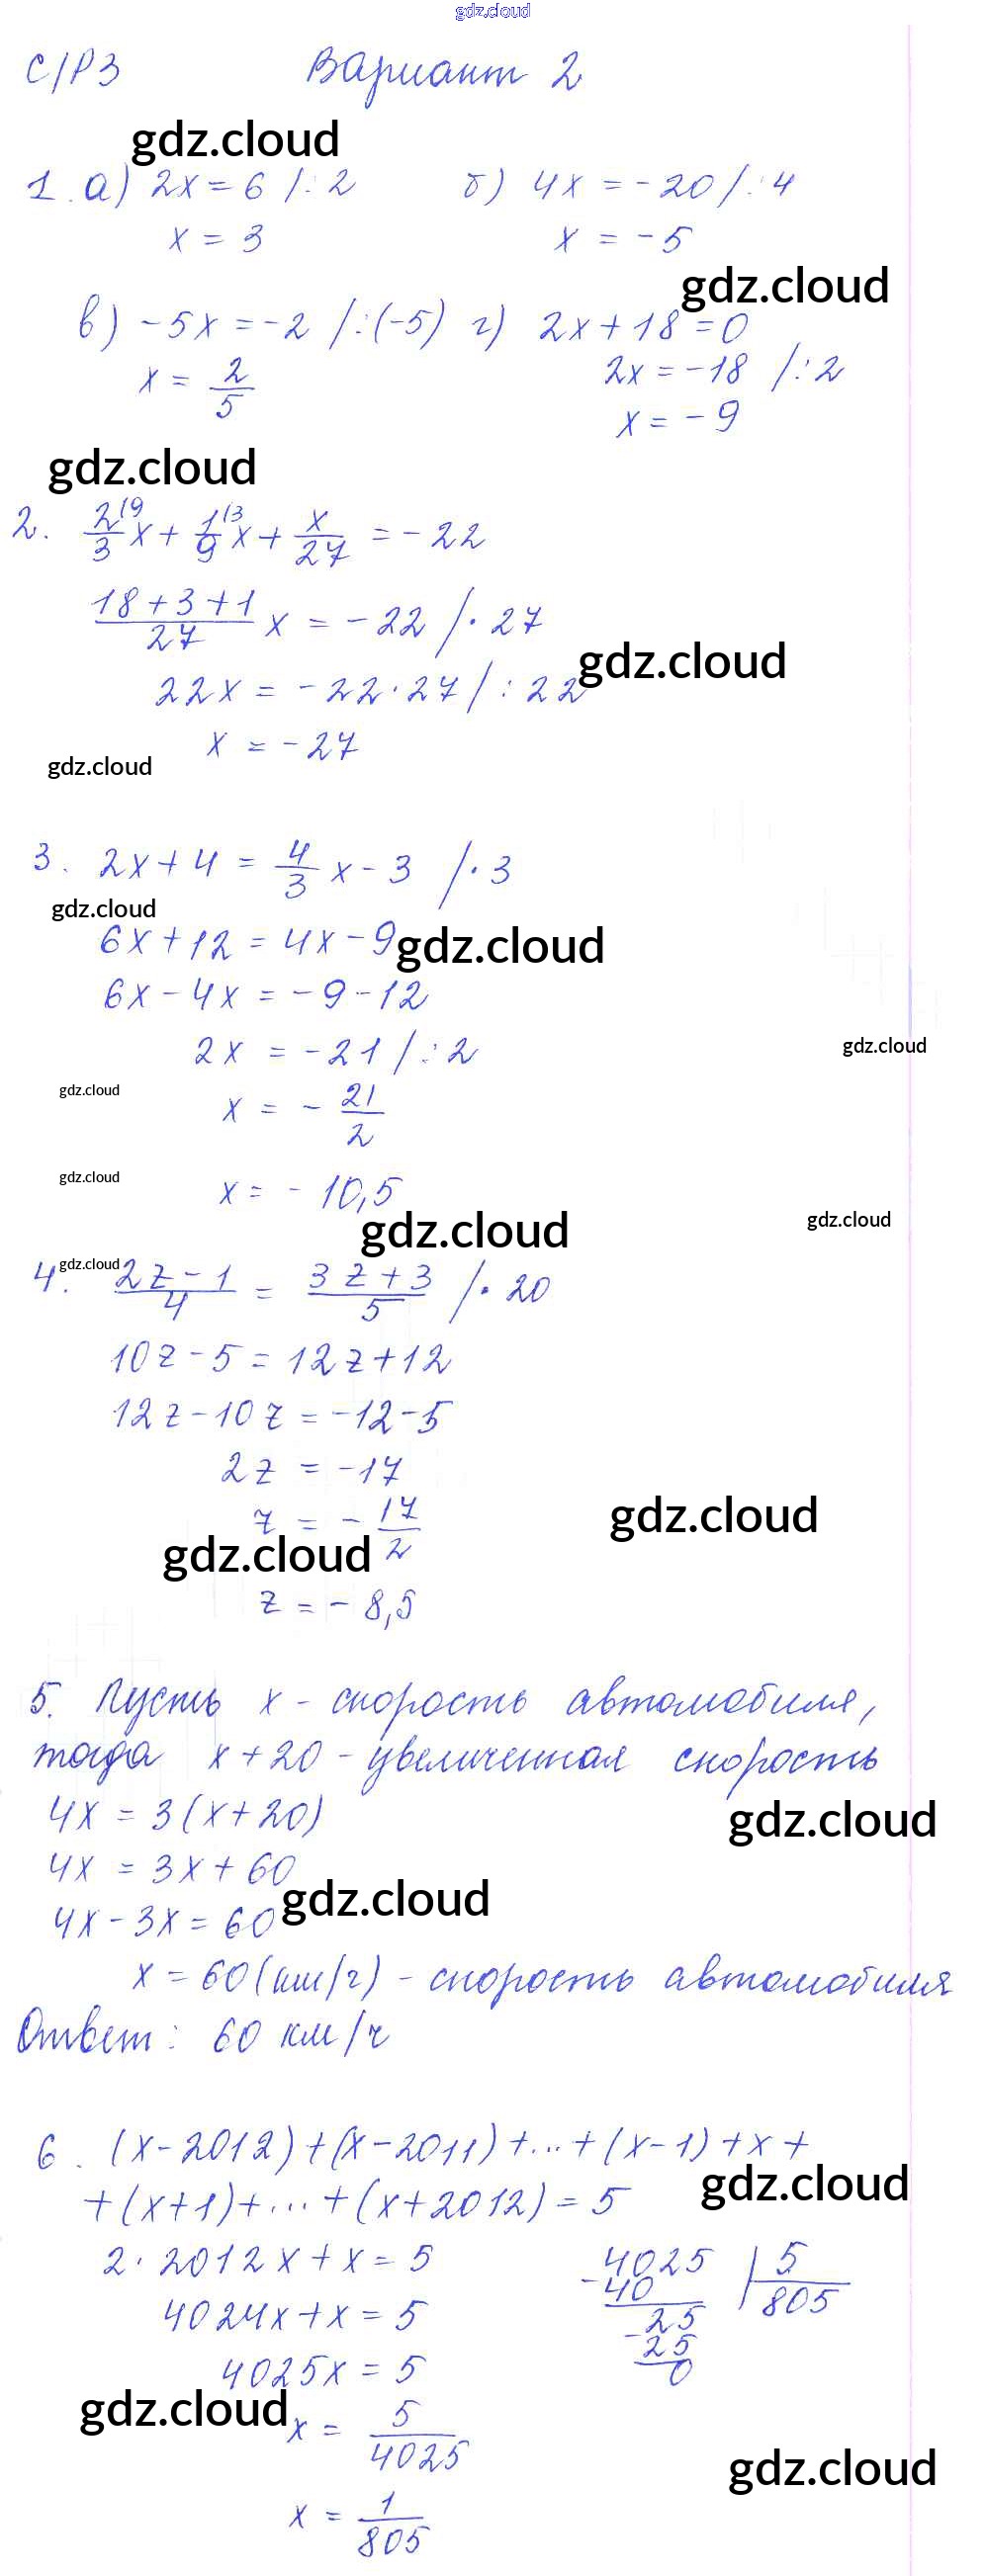 gdz.cloud
С/Р3 Вариант 2
gdz.cloud
1. а) 2x = 6 /:2 б) 4x = -20 /:4
x = 3 x = -5
gdz.cloud
в) -5x = -2 /:(-5) г) 2x + 18 = 0
x = 2/5 2x = -18 /:2
x = -9
gdz.cloud
2. 2/3 (9 x + 1/9 (3 x + x/27 = -22
(18+3+1)/27 x = -22 /·27
gdz.cloud
22x = -22·27 /:22
x = -27
gdz.cloud
3. 2x + 4 = 4/3 x - 3 /·3
gdz.cloud
6x + 12 = 4x - 9
gdz.cloud
6x - 4x = -9 - 12
2x = -21 /:2
gdz.cloud
gdz.cloud
x = - 21/2
gdz.cloud
x = - 10,5
gdz.cloud
gdz.cloud
gdz.cloud
4. (2z-1)/4 = (3z+3)/5 /·20
10z - 5 = 12z + 12
12z - 10z = -12 - 5
2z = -17
z = - 17/2
gdz.cloud
gdz.cloud
z = - 8,5
5. Пусть x - скорость автомобиля,
тогда x + 20 - увеличенная скорость
4x = 3(x + 20)
gdz.cloud
4x = 3x + 60
gdz.cloud
4x - 3x = 60
x = 60 (км/г) - скорость автомобиля
Ответ: 60 км/ч
6. (x-2012)+(x-2011)+...+(x-1)+x+
gdz.cloud
+(x+1)+...+(x+2012) = 5
2·2012x + x = 5 4025 | 5
-40 805
4024x + x = 5 25
-25
4025x = 5 0
gdz.cloud
x = 5/4025
gdz.cloud
x = 1/805